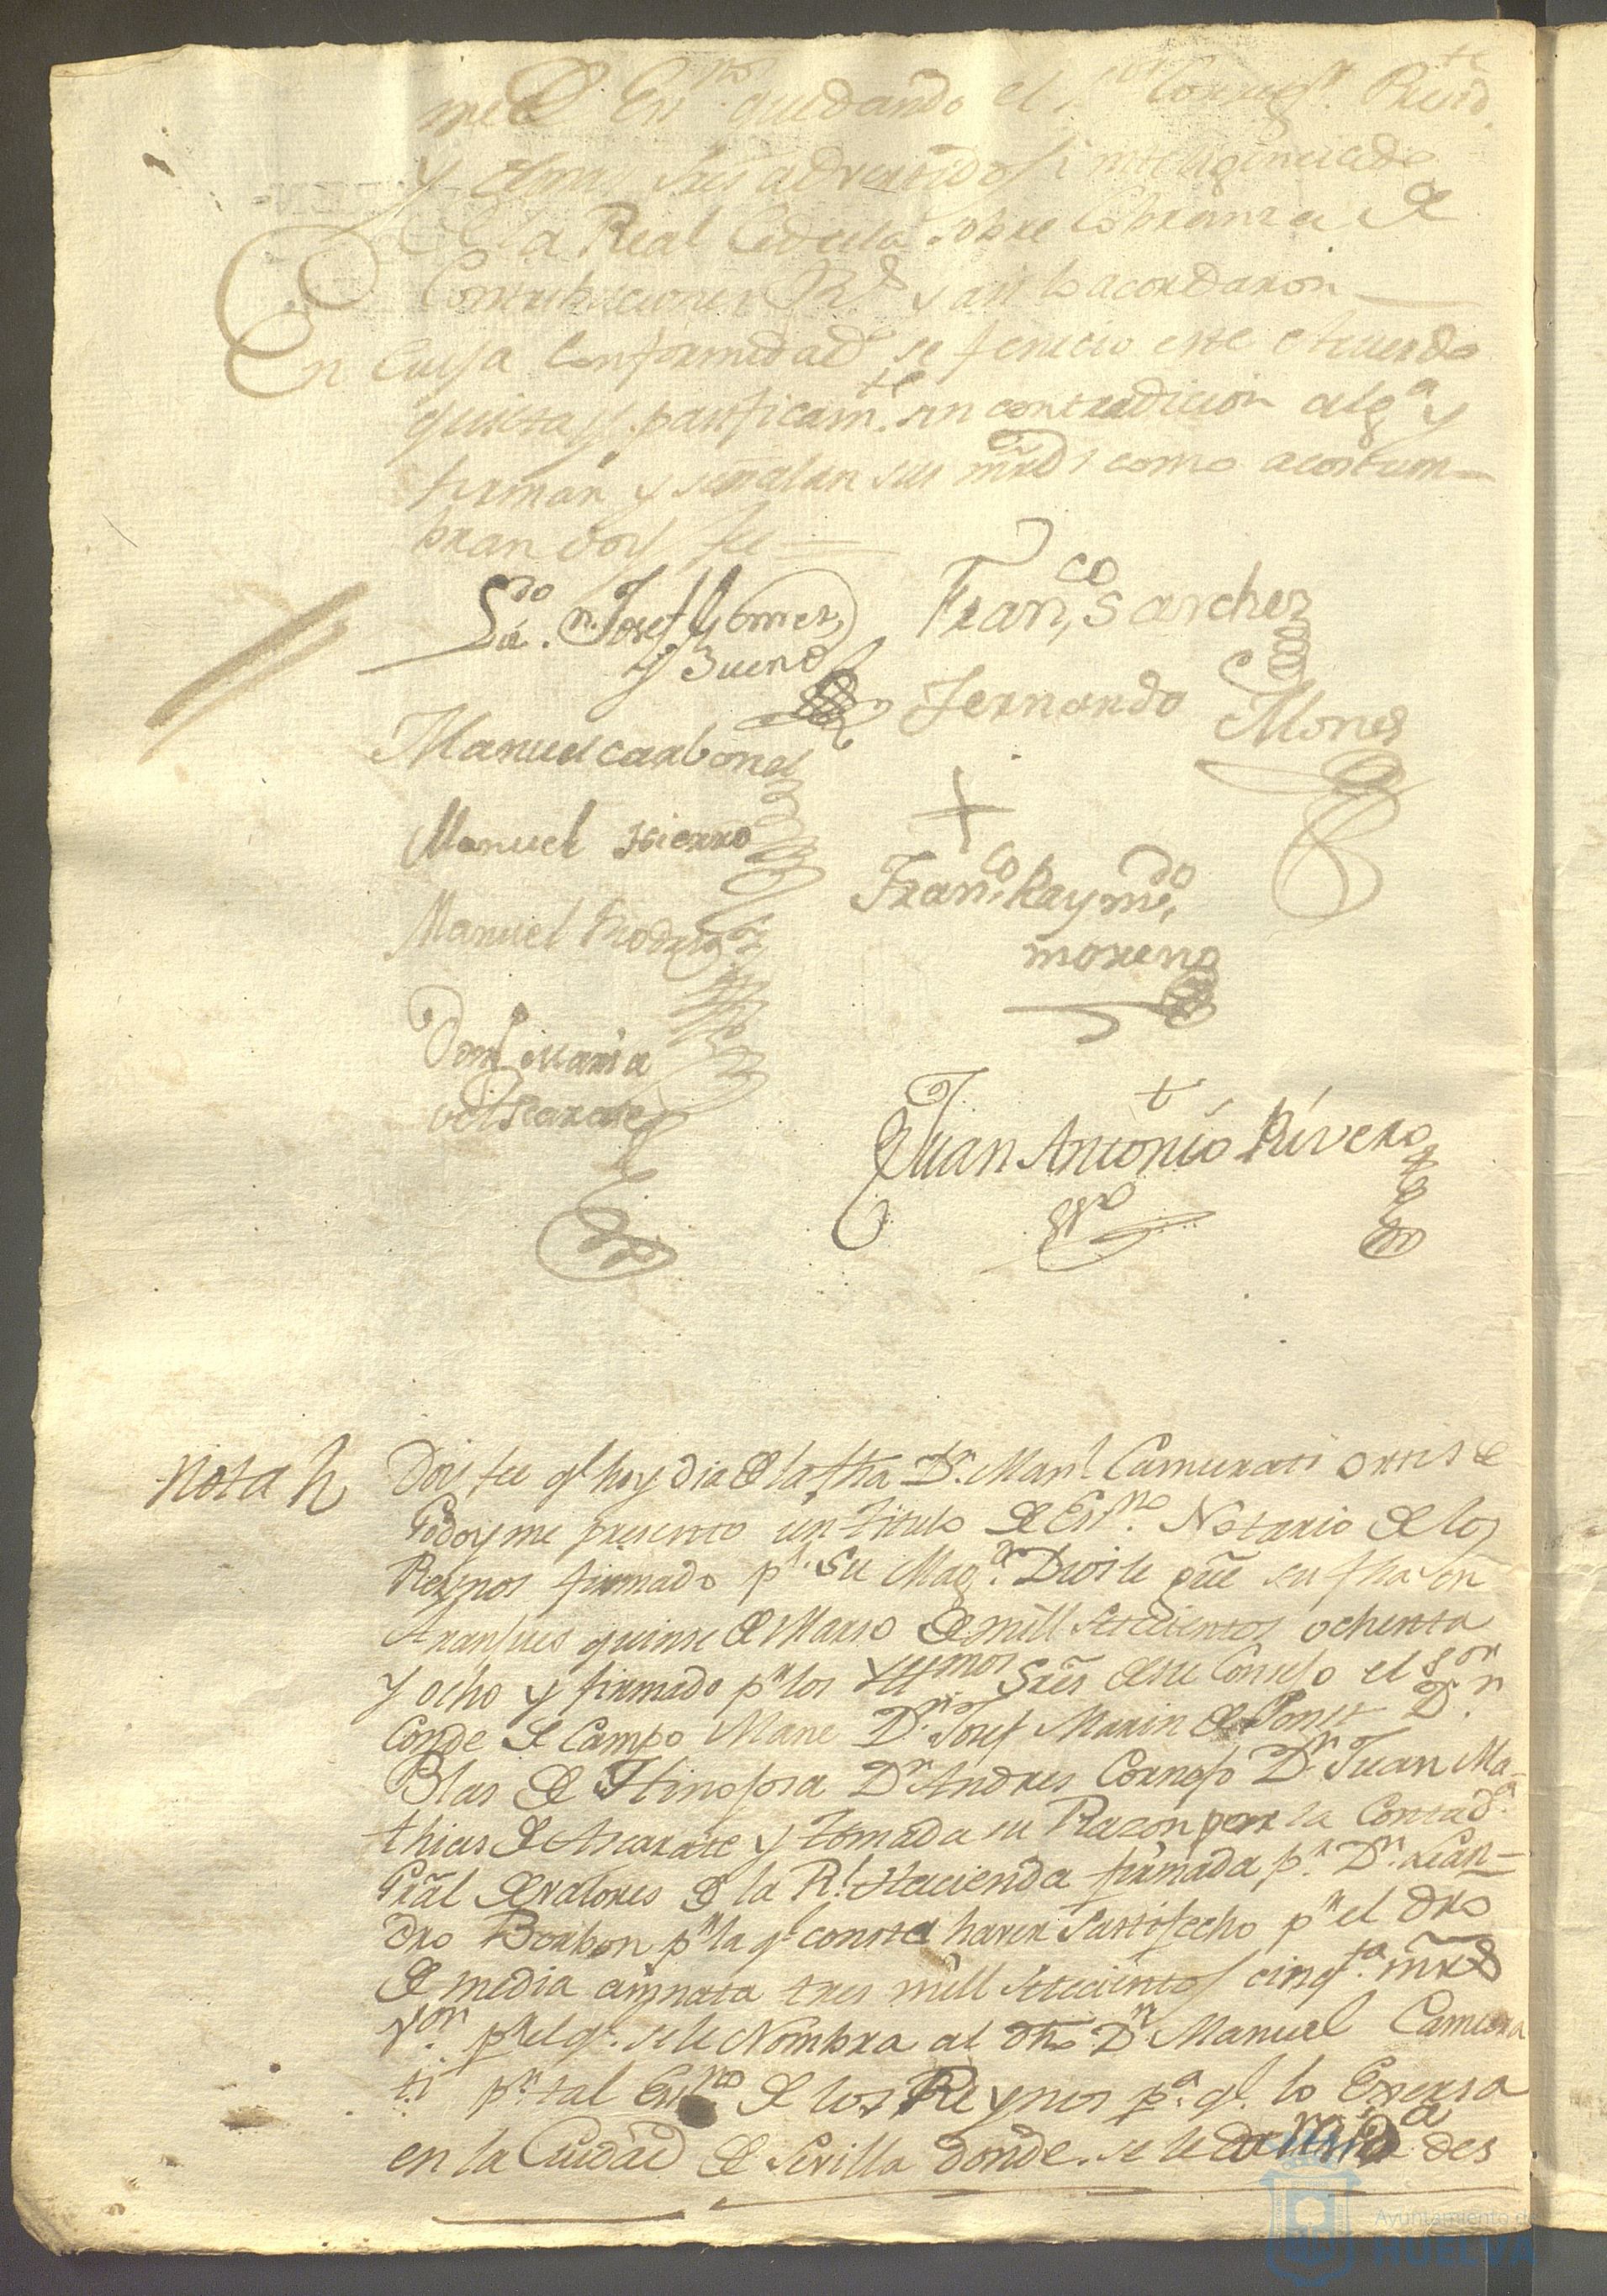 quedando el Sor Corregr Presid.te
y demas Sres advertidos i inteligenciado
de la Real Cedula sobre Cobranza de
Contribuciones Rs y asi lo acordaron
En cuya conformidad se fenecio este Acuerdo
quieta y pasificam.te sin contradicion alg.a y
firman y señalan sus mrds como acostum-
bran doy fee
Ldo. Dn. Josef Gomez
y Bueno
Fran.co Sanchez
Fernando Mones
Manuel carbonel
Manuel Hierro
Fran.co Raym.do
moreno
Manuel Rodrig.z
Maria
Juan Antonio Rivero
Ssno
Nota
Doy fee q.e hoy dia de la fha Dn. Man.l Camurati Ortis de
Godoy me presento un titulo de Es.no Notario de los
Reynos firmado p.r Su Mag.d Dios le gue su fha en
Aranjues quinse de Marso de mill setecientos ochenta
y ocho y firmado p.r los Yllmos Sres de su Consejo el Sor
Conde de Campo Mane Dn. Josef Marin de Ponse Dn.
Blas de Hinojosa Dn Andres Cornejo Dn. Juan Ma-
thias de Ascarate y tomada su Razon por la Contad.a
Gral de valores de la Rl. Hacienda firmada p.r Dn. Lean-
dro Borbon p.r la q.e consta haver sattisfecho p.r el dro
de media annata tres mill setecientos cinq.ta mrs
Von. p.r el q.e se le Nombra al dho Dn Manuel Camura
ti p.r tal Es.no de los Reynos p.a q.e lo Exersa
en la Ciudad de Sevilla donde se le des
Ayuntamiento de
HUELVA